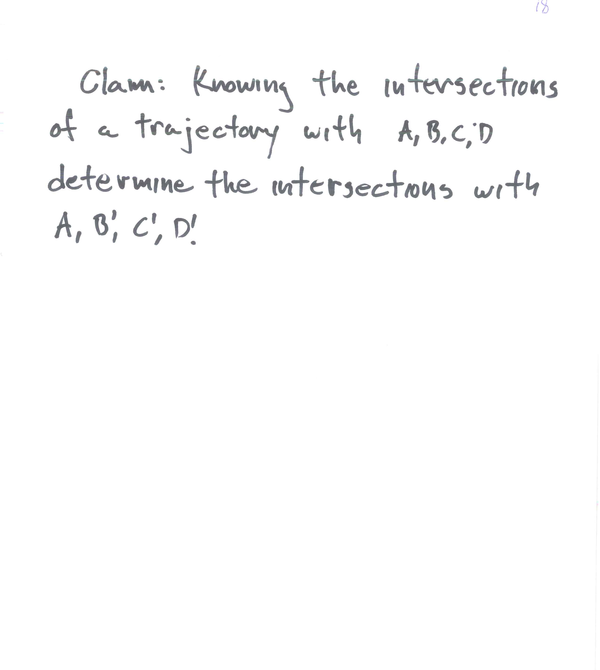 18
Claim: Knowing the intersections
of a trajectory with A, B, C, D
determine the intersections with
A, B', C', D'.